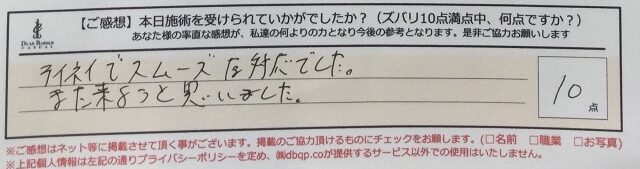 DEAR BARBER
CASUAL
【ご感想】本日施術を受けられていかがでしたか？（ズバリ10点満点中、何点ですか？）
あなた様の率直な感想が、私達の何よりの力となり今後の参考となります。是非ご協力お願いします
テイネイでスムーズな対応でした。
また来ようと思いました。
10
点
※ご感想はネット等に掲載させて頂く事がございます。掲載のご協力頂けるものにチェックをお願します。(□名前 □職業 □お写真)
※上記個人情報は左記の通りプライバシーポリシーを定め、㈱dbqp.coが提供するサービス以外での使用はいたしません。